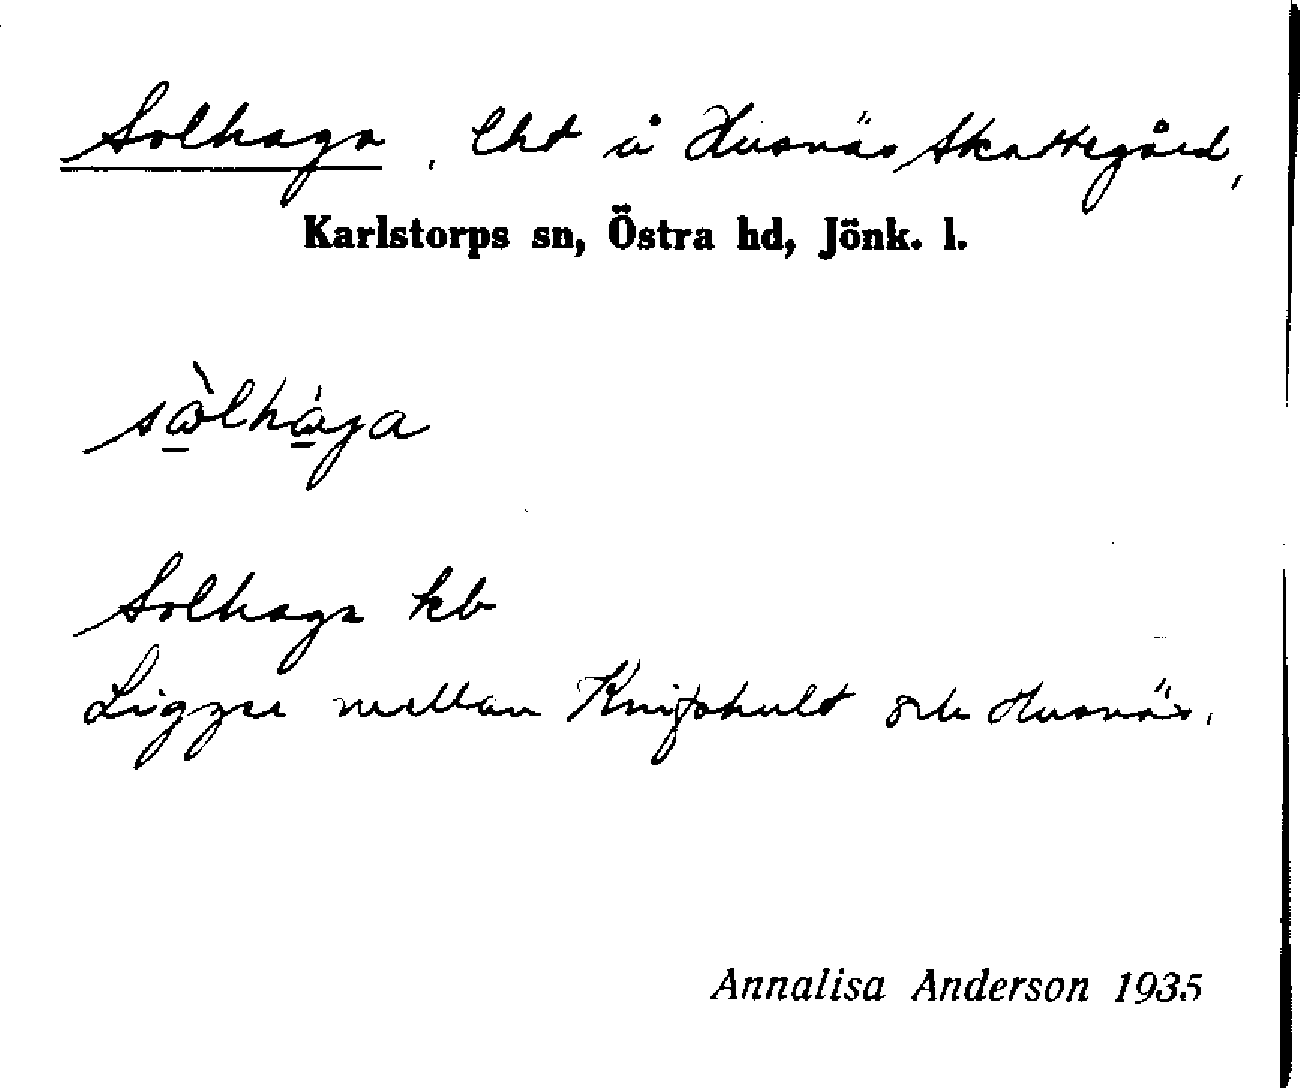 Solhaga, lht å Husnäs Skattegård,
Karlstorps sn, Östra hd, Jönk. l.
sòlhága
Solhaga kb
Ligger mellan Knifshult och Husnäs.
Annalisa Anderson 1935